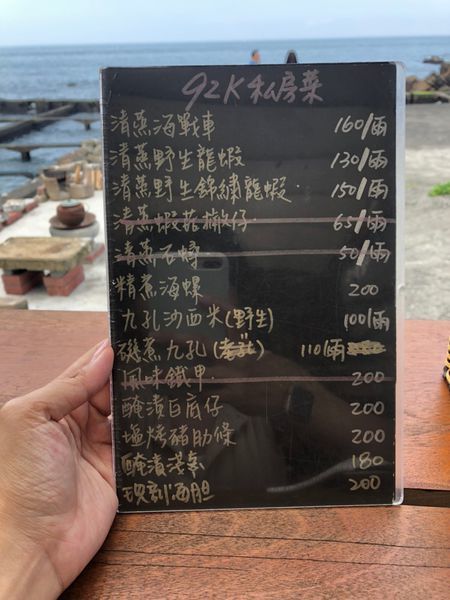 92K私房菜
清蒸海戰車 160/兩
清蒸野生龍蝦 130/兩
清蒸野生錦繡龍蝦. 150/兩
清蒸蝦菇撇仔. 65/兩
清蒸石蟳 50/兩
精煮海螺 200
九孔沙西米(野生) 100/兩
磯煮九孔( ) 110/兩
風味鐵甲. 200
醃漬白底仔 200
塩烤豬助條 200
醃漬淺 180
現剖海胆 200